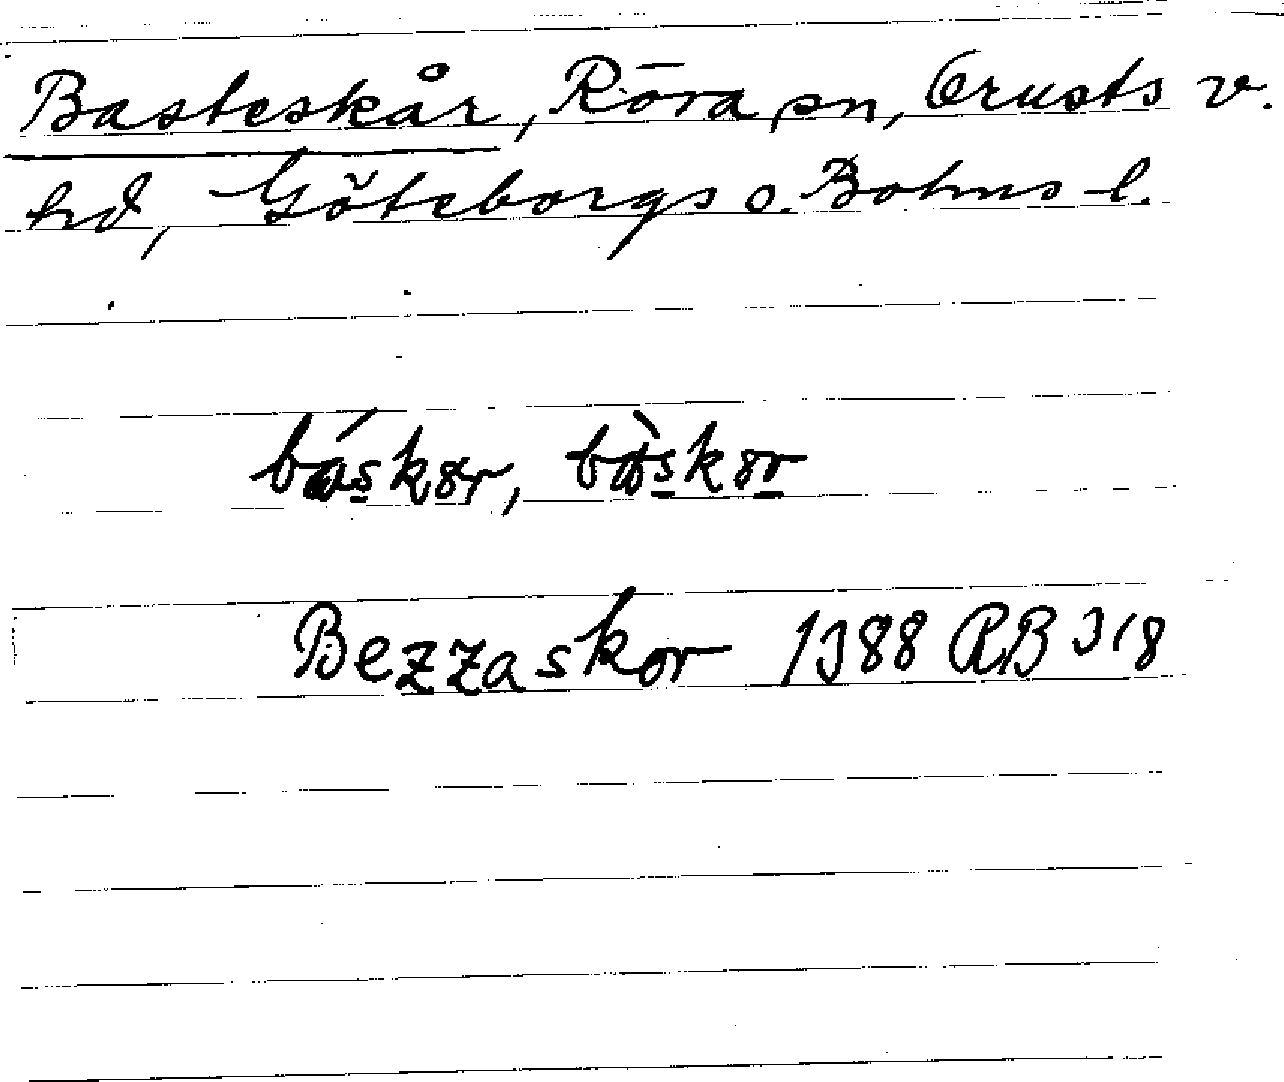 Basteskår, Röra sn, Orusts v.
hd, Göteborgs o. Bohus l.
báskør, bàskør
Bezzaskor 1388 RB 318